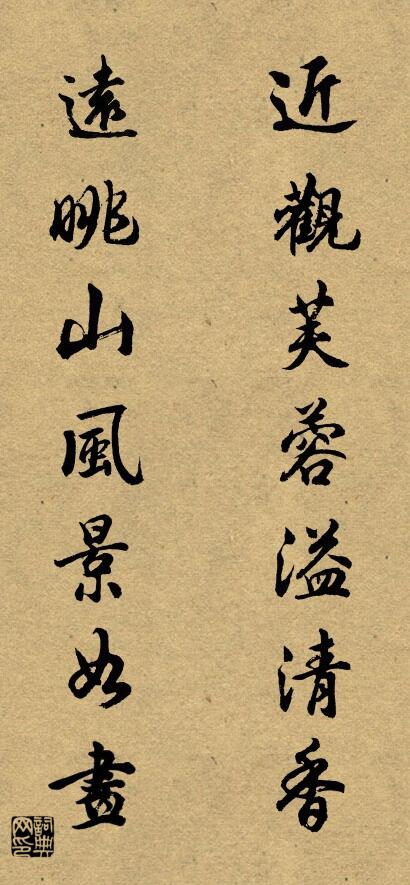 近觀芙蓉溢清香
遠眺山風景如畫
詞典
网印